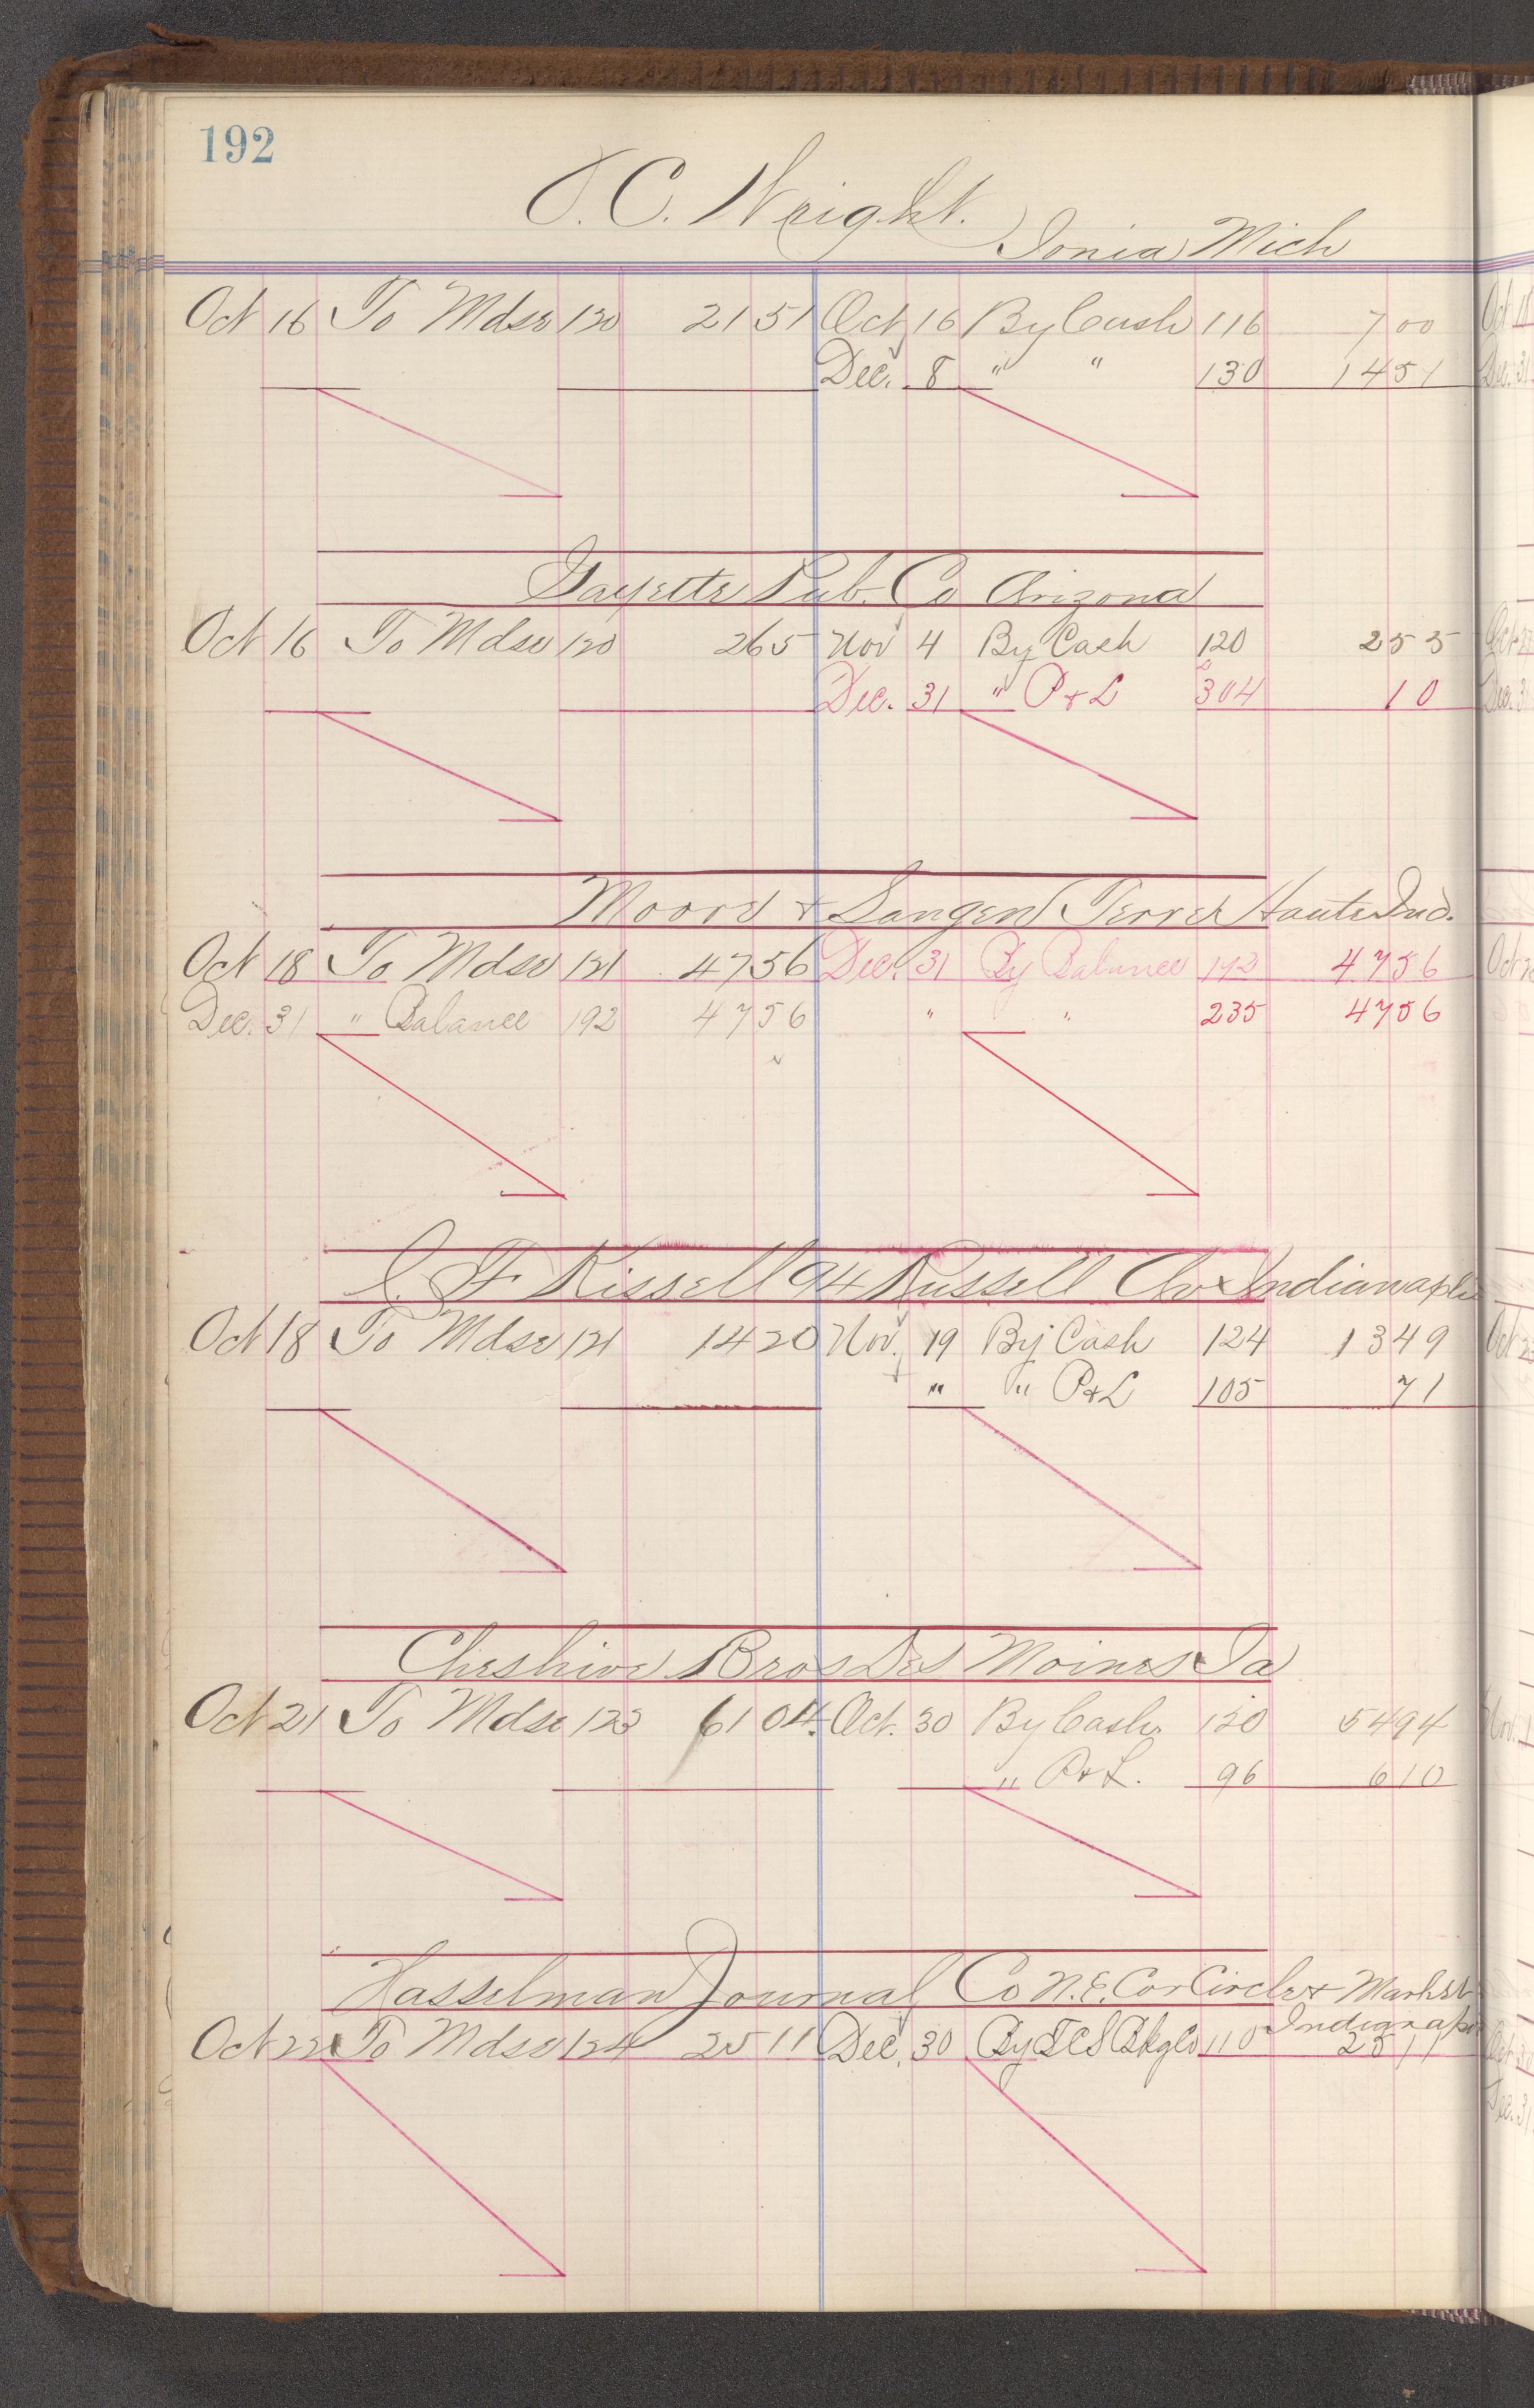 192
J. C. Wright.
Ionia Mich
Oct 16 To Mdse 120 21 51 Oct 16 By Cash 116 7 00
Dec. 8 " " 130 14 51
Gayette Pub. Co Arizona
Oct 16 To Mdse 120 2 65 Nov 4 By Cash 120 2 55
Dec. 31 " P & L 304 10
Moore & Langen Terre Haute Ind.
Oct 18 To Mdse 121 47 56 Dec. 31 By Balance 192 47 56
Dec. 31 " Balance 192 47 56 " " 235 47 56
Kissell 94 Russell Av Indianapolis
Oct 18 To Mdse 121 14 20 Nov. 19 By Cash 124 13 49
" " P & L 105 71
Cheshire Bros Des Moines Ia
Oct 21 To Mdse 123 61 04 Oct. 30 By Cash 120 54 94
" P & L. 96 6 10
Hasselman Journal Co N.E. Cor Circle & Market
Indianap
Oct 22 To Mdse 124 25 11 Dec. 30 By 110 25 11